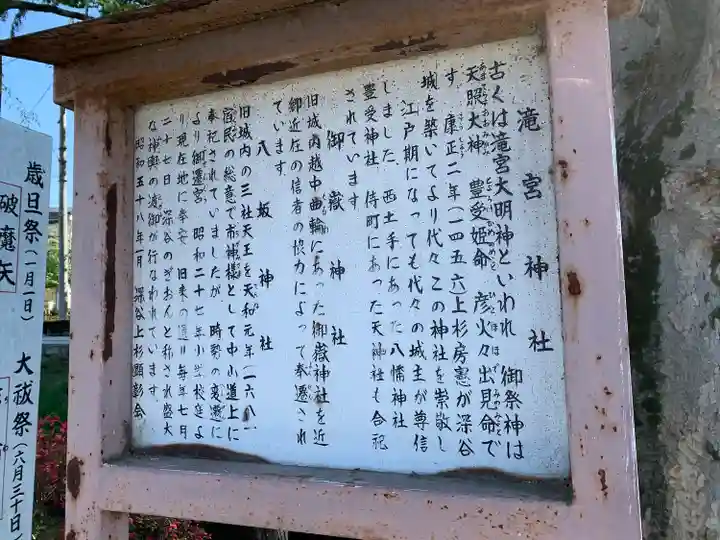 滝宮神社
古くは滝宮大明神といわれ 御祭神は
天照大神 豊受姫命 彦火々出見命で
す。康正二年(一四五六上杉房憲が深谷
城を築いてより代々この神社を崇敬し
江戸期になっても代々の城主が尊信
しました。西土手にあった八幡神社
豊受神社、侍町にあった天神社も合祀
されています
御嶽神社
旧城内越中曲輪にあった御嶽神社を近
郷近在の信者の協力によって奉遷され
ています。
八坂神社
旧城内の三社天王を天和元年(一六八一
宿民の総意で市神様として中小道上に
奉祀されていましたが 時勢の変遷に
より御遷宮、昭和二十七年小学校庭よ
り現在地に奉安 旧来の通り毎年七月
二十七日 深谷のぎおんと称され盛大
な神輿の渡御が行なわれています。
昭和五十八年一月 深谷上杉顕彰会
歳旦祭(一月一日)
大祓祭(六月三十日
破魔矢